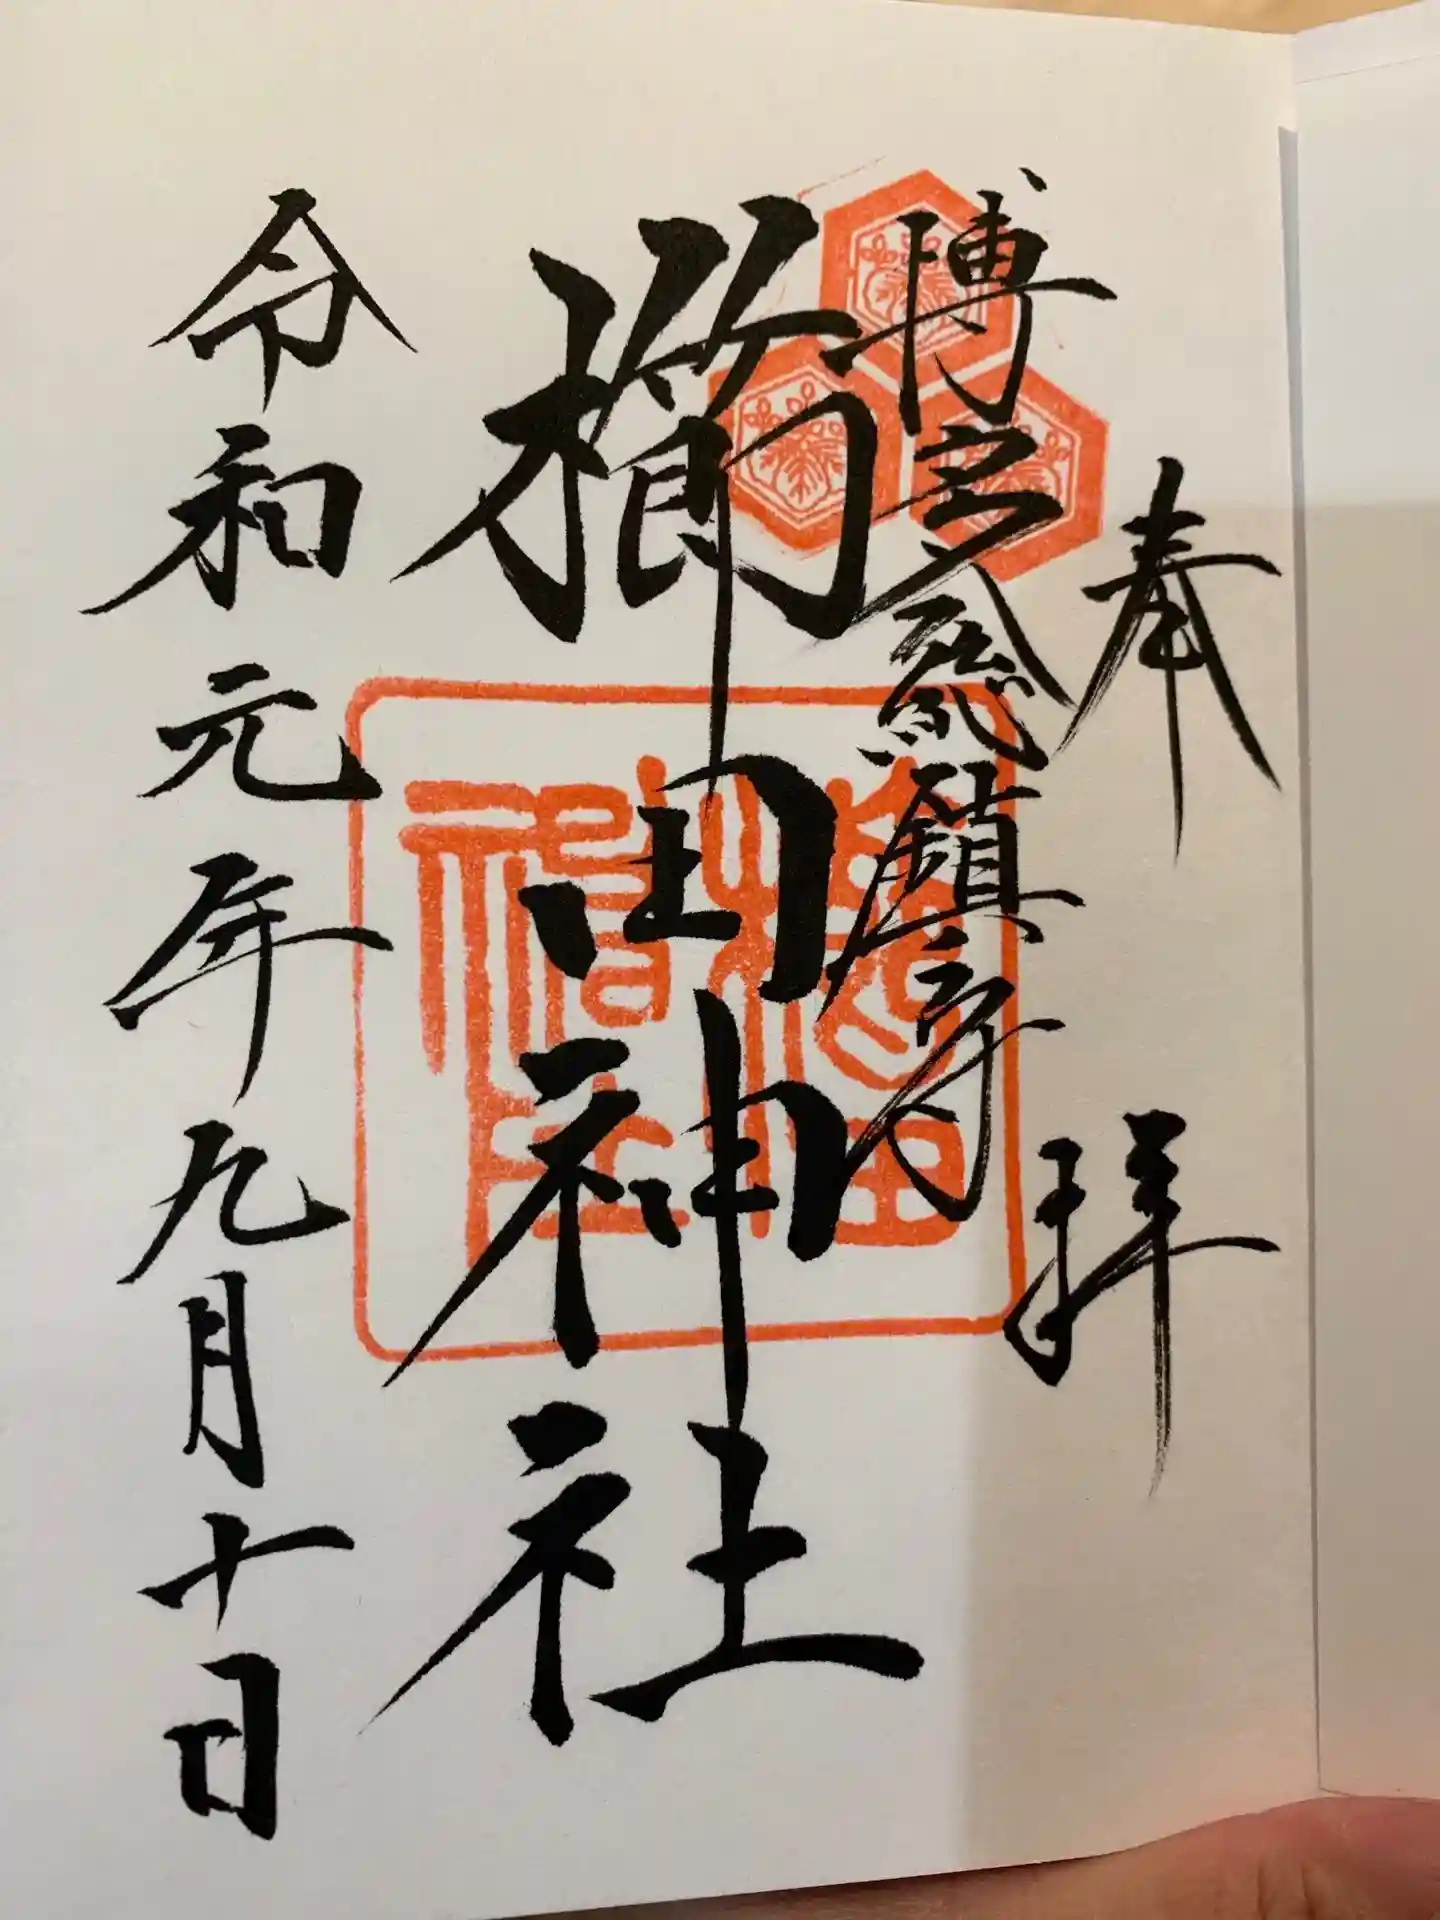 奉拝
博多總鎮守
櫛田神社
令和元年九月十日
櫛田
神社